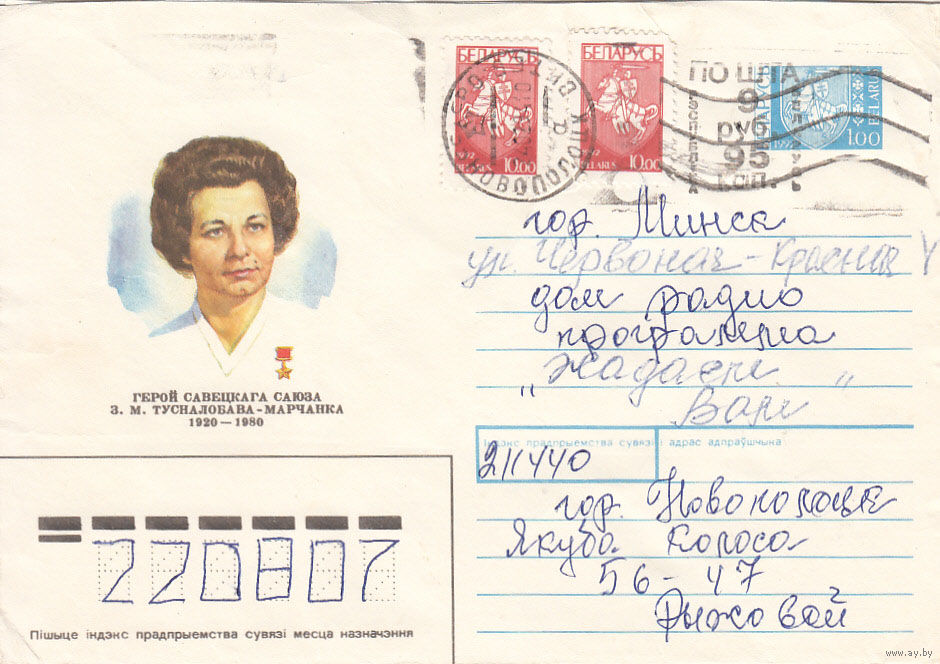 БЕЛАРУСЬ
1992
10.00
BELARUS
БЕЛАРУСЬ
1992
BELARUS
10.00
ПОШТА
9
руб.
95
коп.
1992
BELARUS
1.00
НОВОПОЛОЦК
гор. Минск
ул. Червоная - Красная 4
дом радио
программа
„Жадаем
Вам“
ГЕРОЙ САВЕЦКАГА САЮЗА
З. М. ТУСНАЛОБАВА-МАРЧАНКА
1920—1980
Індэкс прадпрыемства сувязі і адрас адпраўшчыка
211440
гор. Новополоцк
Якуба Колоса
56-47
Рыжовой
220807
Пішыце індэкс прадпрыемства сувязі месца назначэння
www.ay.by